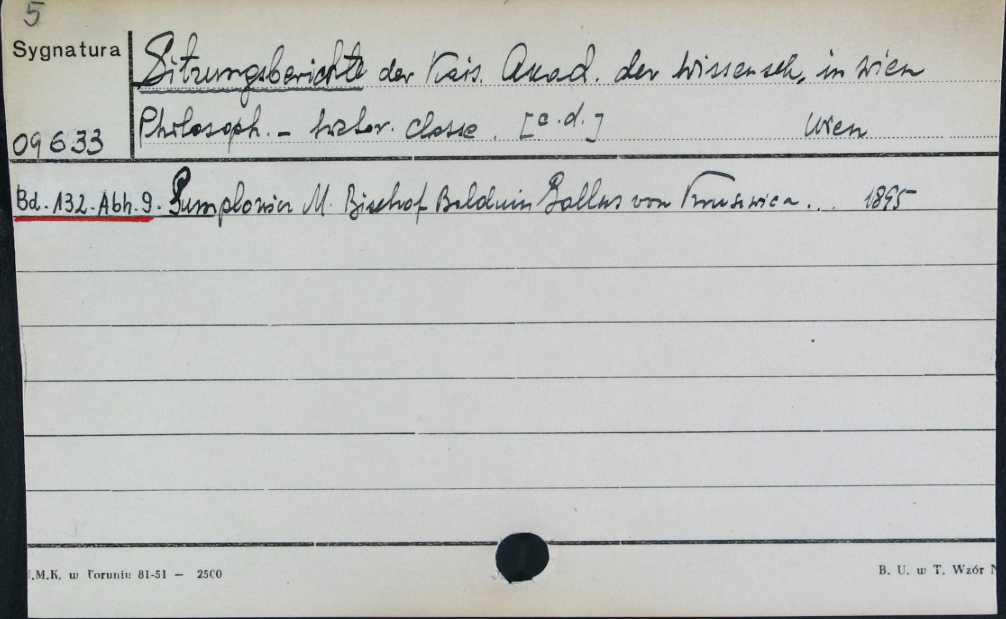 5
Sygnatura
Sitzungsberichte der Kais. Akad. der Wissensch. in Wien
09633
Philosoph. - histor. Classe. [c.d.] Wien
Bd. 132. Abh. 9. Gumplowicz M. Bischof Balduin Gallus von Kruszwica... 1895
.M.K. w Toruniu 81-51 — 2500
B. U. w T. Wzór N